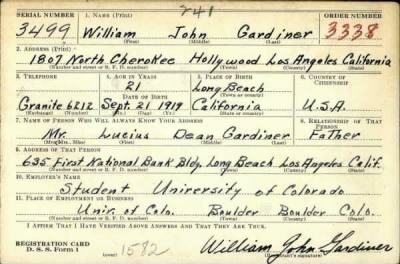 241
SERIAL NUMBER 1. NAME (Print) ORDER NUMBER
3499 William John Gardiner 3338
(First) (Middle) (Last)
2. ADDRESS (Print)
1807 North Cherokee Hollywood Los Angeles California
(Number and street or R. F. D. number) (Town) (County) (State)
3. TELEPHONE 4. AGE IN YEARS 5. PLACE OF BIRTH 6. COUNTRY OF CITIZENSHIP
21 Long Beach
DATE OF BIRTH
Granite 6212 Sept. 21 1919 California U.S.A.
(Exchange) (Number) (Mo.) (Day) (Yr.) (State or country)
7. NAME OF PERSON WHO WILL ALWAYS KNOW YOUR ADDRESS 8. RELATIONSHIP OF THAT PERSON
Mr. Lucius Dean Gardiner Father
(Mr., Mrs., Miss) (First) (Middle) (Last)
9. ADDRESS OF THAT PERSON
635 First National Bank Bldg. Long Beach Los Angeles Calif.
(Number and street or R. F. D. number) (Town) (County) (State)
10. EMPLOYER'S NAME
Student University of Colorado
11. PLACE OF EMPLOYMENT OR BUSINESS
Univ. of Colo. Boulder Boulder Colo.
(Number and street or R. F. D. number) (Town) (County) (State)
I AFFIRM THAT I HAVE VERIFIED ABOVE ANSWERS AND THAT THEY ARE TRUE.
REGISTRATION CARD
D. S. S. Form 1 (over) 1582 William John Gardiner
(Registrant's signature)